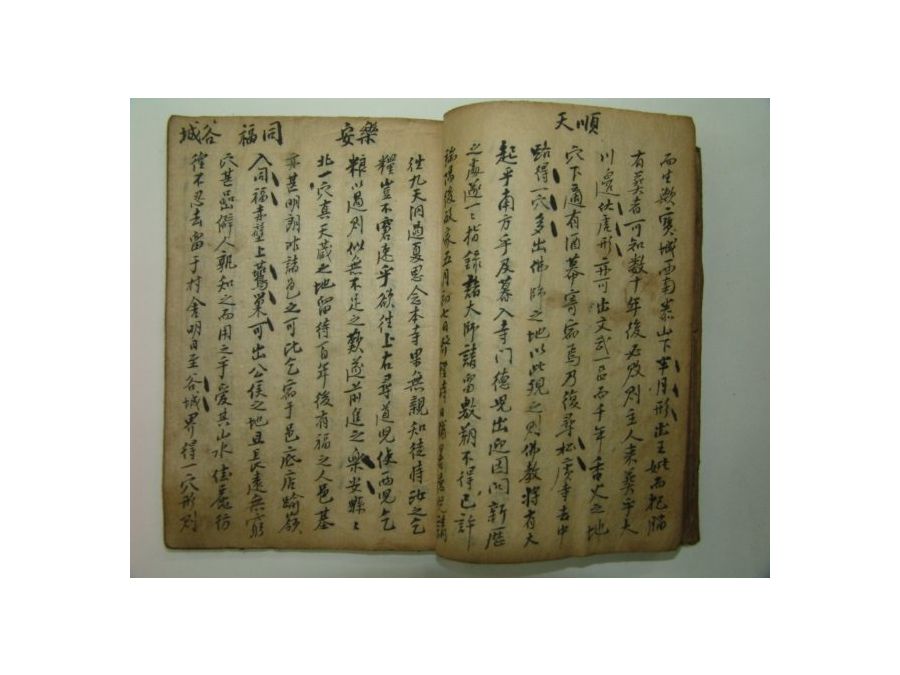 順天
而生歟寶城西南 山下半月形出王妣而
有葬者可知数十年後必敗則主人来葬乎大
川邊伏虎形亦可出文武一品而千年香火之地
穴下適有酒幕寄宿焉乃復尋松廣寺去中
路得一穴多出佛師之地以此現之則佛教將有大
起乎南方乎及暮入寺门德児出迎因问新歷
之處遂一〻指錄諸大師請留数朔不得已許
端陽後 五月初七日
樂安 同福 谷城
往九天洞過夏思念本寺果無親知徒恃 之乞
糧豈不窘速乎欲往上右尋道児使两児乞
粮以過則似無不足之歎遂前進之樂安縣〻
北一穴真天藏之地留待百年後有福之人邑基
亦甚明朗非諸邑之可比乞宿于邑底店踰嶺
入同福赤壁上鶯巢可出公侯之地且長遠無窮
穴甚幽僻人孰知之而用之乎愛其山水佳麗彷
徨不忍去留于村舍明日至谷城界得一穴形則